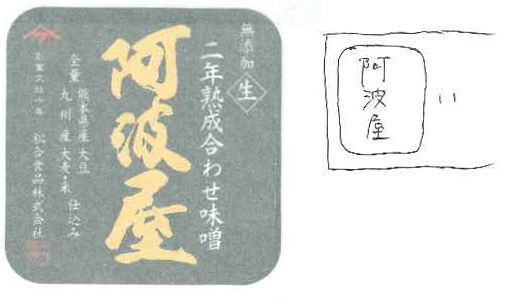 無添加 生
二年熟成合わせ味噌
阿波屋
全量 熊本県産大豆
九州産大麦・米 仕込み
創業文政十年 松合食品株式会社
阿波屋